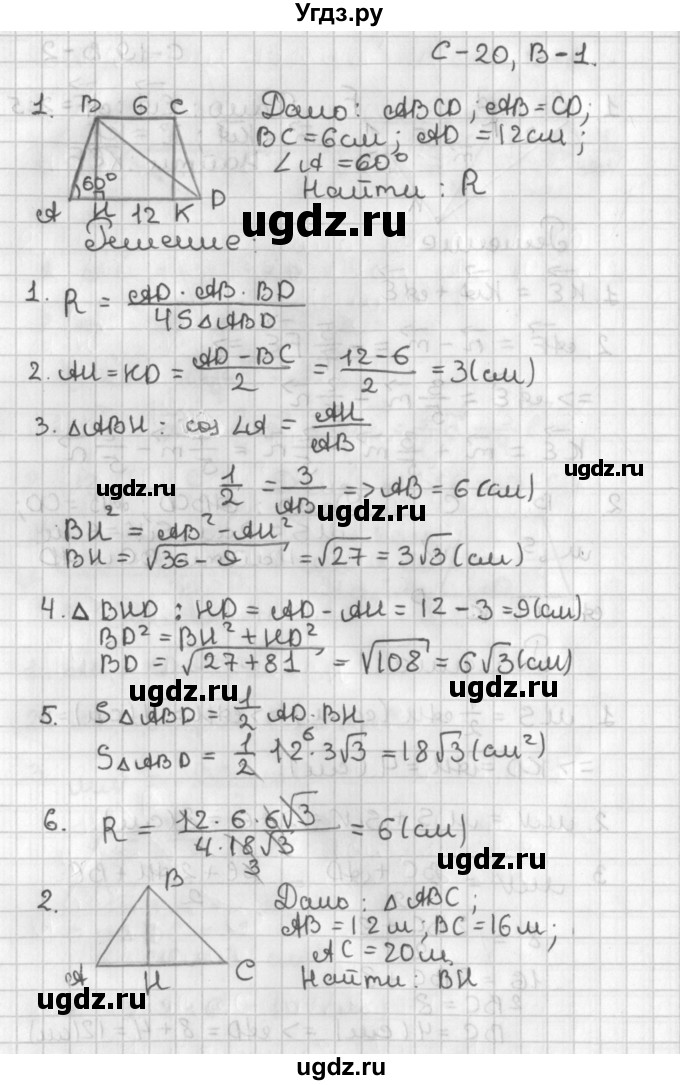 Угдз.ру
С-20, В-1.
1. B 6 C Дано: ABCD; AB=CD;
BC=6см; AD=12см;
∠A=60°
60° Найти: R
A H 12 K D
Решение:
ugdz.ru
1. R = AD·AB·BD / 4S△ABD
ugdz.ru
2. AH=KD= AD-BC / 2 = 12-6 / 2 = 3(см)
3. △ABH: cos∠A = AH / AB
ugdz.ru
1/2 = 3/AB => AB = 6(см)
ugdz.ru
BH² = AB² - AH²
BH = √36-9 = √27 = 3√3(см)
ugdz.ru
4. △BHD: HD = AD - AH = 12 - 3 = 9(см)
BD² = BH² + HD²
BD = √27+81 = √108 = 6√3(см)
ugdz.ru
ugdz.ru
5. S△ABD = 1/2 AD·BH
S△ABD = 1/2 · 12 6 · 3√3 = 18√3(см²)
ugdz.ru
6. R = 12·6·6√3 / 4·18√3 3 = 6(см)
ugdz.ru
2. B Дано: △ABC;
AB=12м; BC=16м;
AC=20м
A H C Найти: BH
ugdz.ru
ugdz.ru
ugdz.ru